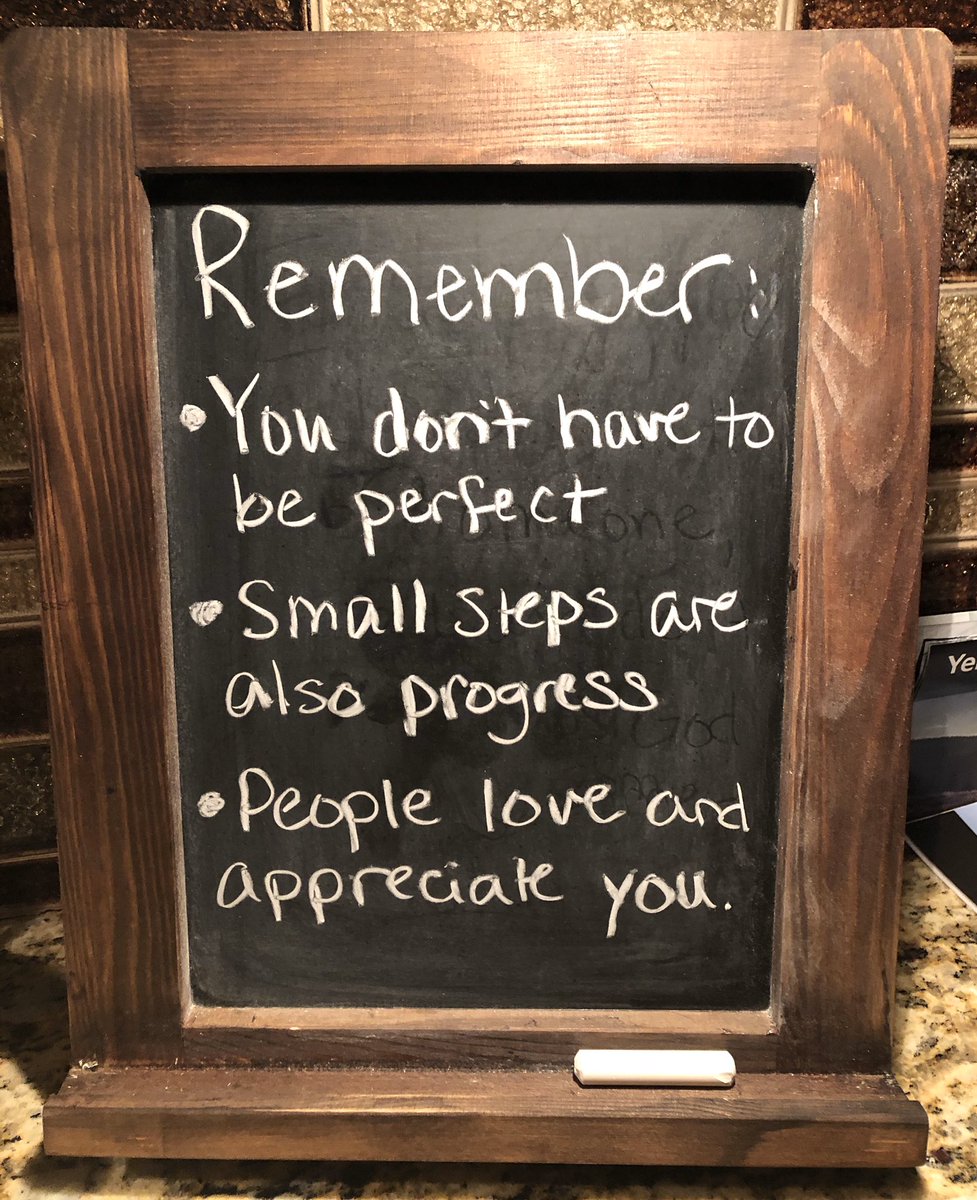 Remember:
• You don't have to
be perfect
• Small steps are
also progress
• People love and
appreciate you.